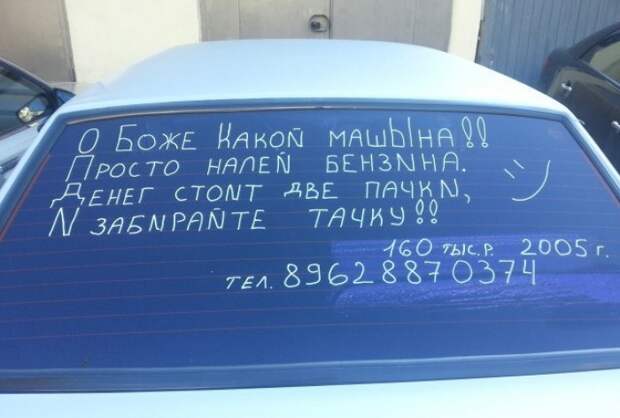 О Боже Какой машЫна!!
Просто налей бензина.
Денег стоит две пачки,
И забирайте тачку!!
160 тыс.р. 2005 г.
тел. 89628870374